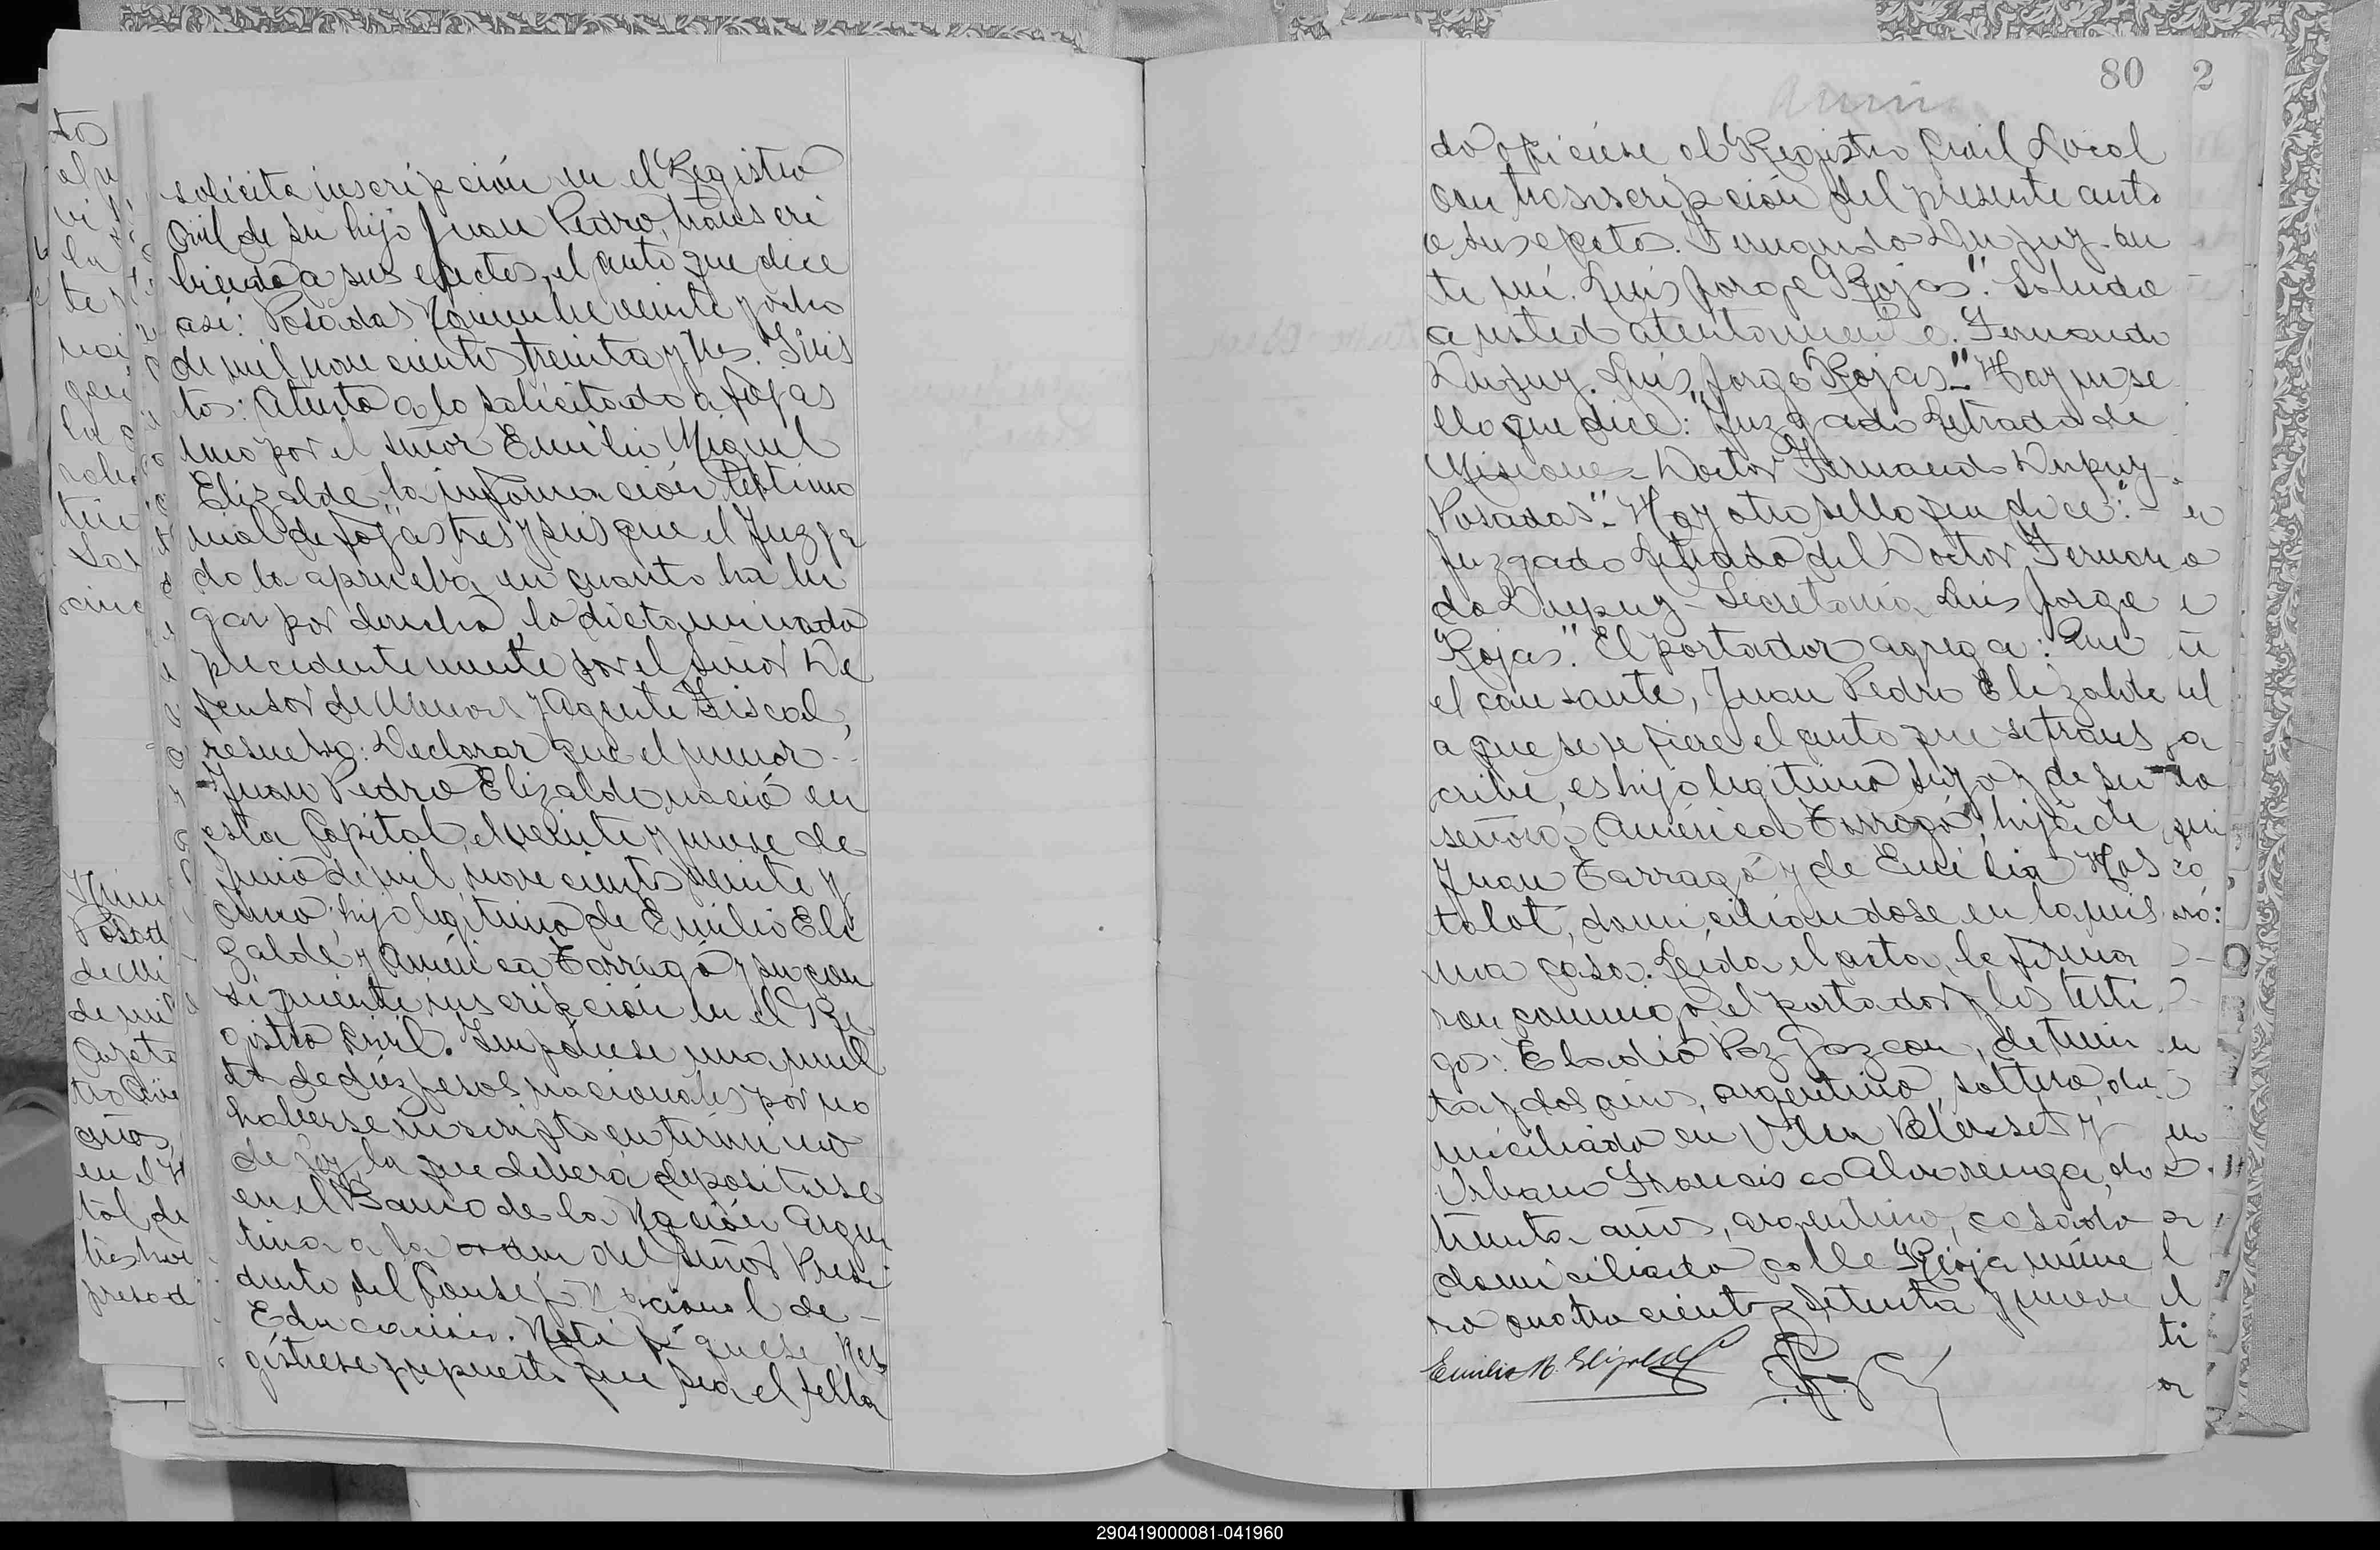 solicita inscripción en el Registro
Civil de su hijo Juan Pedro, transcri
biendo a sus efectos, el auto que dice
así: Posadas Noviembre veinte y ocho
de mil nove cientos treinta y tres. Vis
tos: Atento a lo solicitado a fojas
uno por el señor Emilio Miguel
Elizalde, la información testimo
nial de fojas tres y seis que el Juzga
do la aprueba en cuanto ha lu
gar por derecho, lo dictaminado
precedentemente por el señor De
fensor de Menores y Agente Fiscal,
resuelvo: Declarar que el menor
Juan Pedro Elizalde nació en
esta Capital, el veinte y nueve de
Junio de mil nove cientos veinte y
cinco, hijo legítimo de Emilio Eli
zalde y América Tarragó y su con
siguiente inscripción en el Re
gistro Civil. Impónese una mul
ta de diez pesos nacionales por no
haberse inscripto en término
de ley, la que deberá depositarse
en el Banco de la Nación Argen
tina a la orden del señor Presi
dente del Consejo Nacional de
Educación. Notifíquese, Re
gístrese y repuesto que sea el sella
80 2
do ofíciese al Registro Civil Local
con trasscripción del presente auto
a sus efectos. Fernando Dupuy. an
te mí. Luis Jorge Rojas". Saludo
a usted atentamente. Fernando
Dupuy. Luis Jorge Rojas". Hay un se
llo que dice: "Juzgado Letrado de
Misiones - Doctor Fernando Dupuy -
Posadas". Hay otro sello que dice:
Juzgado Letrado del Doctor Fernan
do Dupuy - Secretaría Luis Jorge
Rojas". El portador agrega: Que
el causante, Juan Pedro Elizalde
a que se refiere el auto que se trans
cribe, es hijo legítimo suyo y de su
señora América Tarragó, hija de
Juan Tarragó y de Emilia Hos
talot, domiciliándose en la mis
ma casa. Leída el acta, la firma
ron conmigo, el portador y los testi
gos: Eladio Paz Gazcon, de trein
ta y dos años, argentino, soltero, do
miciliado en Villa Blosset y
Urbano Francisco Alvarenga, de
treinta años, argentino, casado
domiciliado calle Rioja núme
ro cuatro cientos setenta y nueve
Emilio M. Elizalde
290419000081-041960